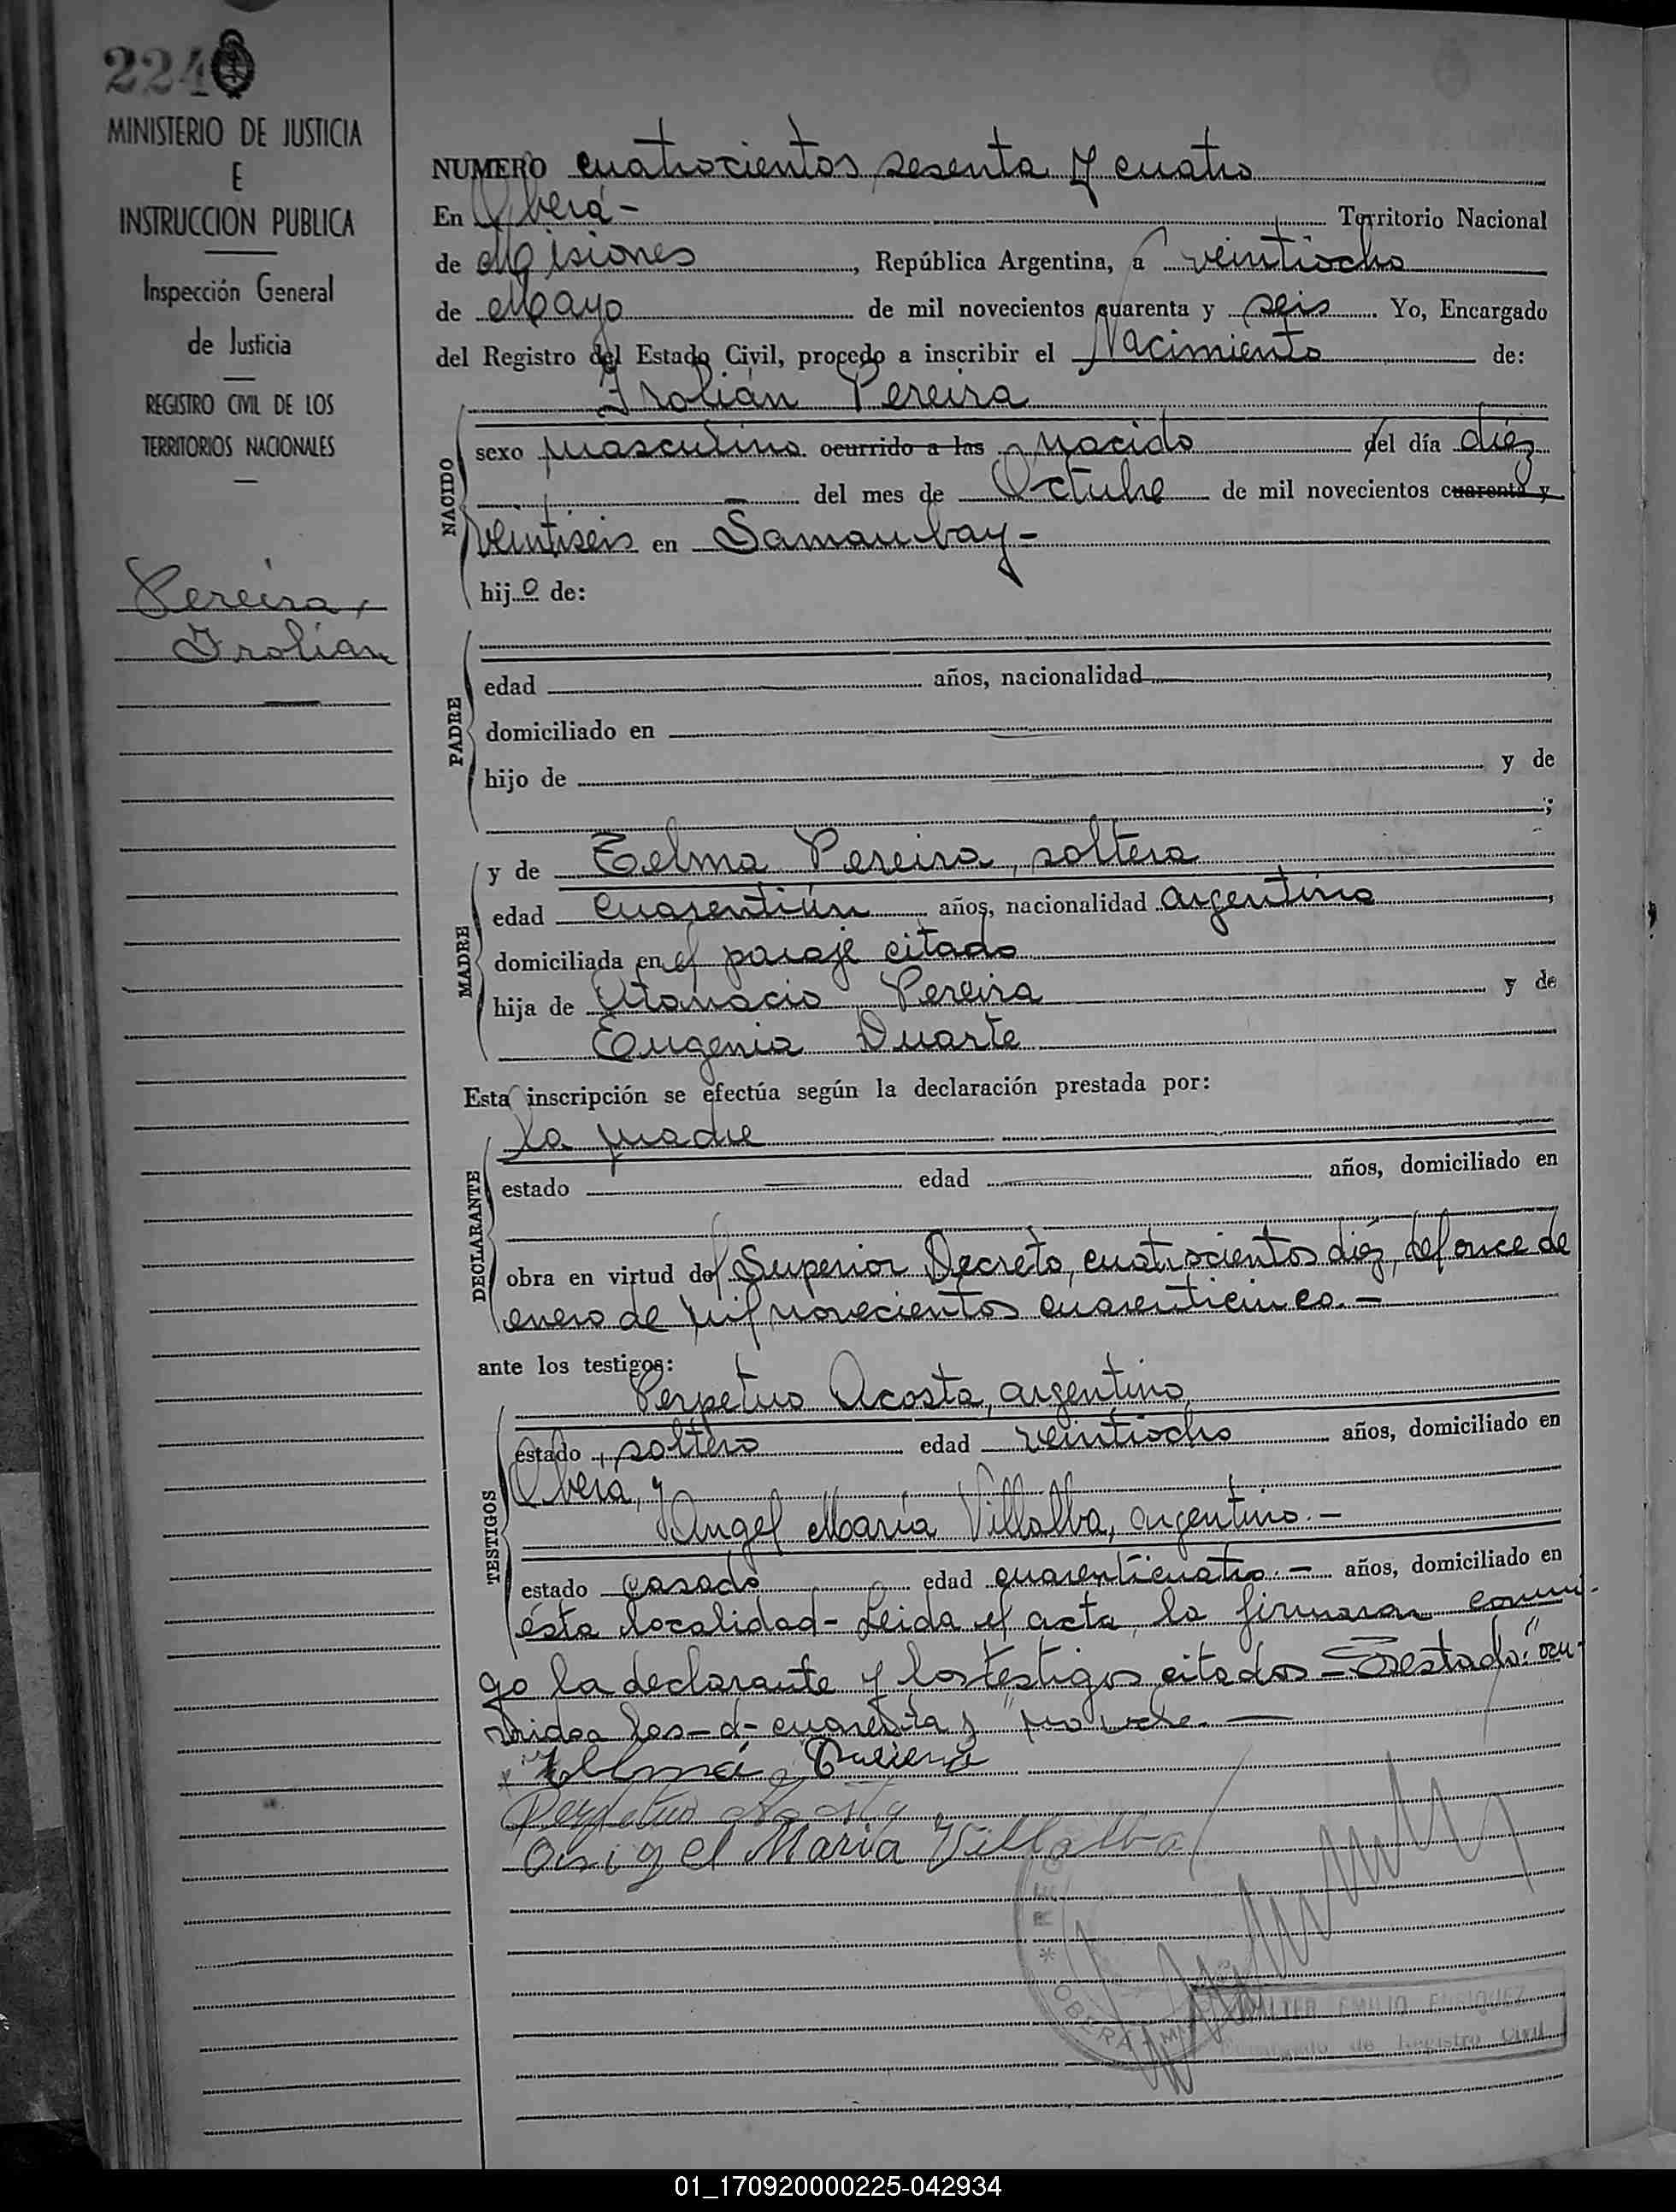 224
MINISTERIO DE JUSTICIA
E
INSTRUCCION PUBLICA
Inspección General
de Justicia
REGISTRO CIVIL DE LOS
TERRITORIOS NACIONALES
Pereira,
Frolián
NUMERO cuatrocientos sesenta y cuatro
En Oberá - Territorio Nacional
de Misiones, República Argentina, a veintiocho
de Mayo de mil novecientos cuarenta y seis. Yo, Encargado
del Registro del Estado Civil, procedo a inscribir el Nacimiento de:
Frolián Pereira
NACIDO
sexo masculino ocurrido a las nacido del día diéz
del mes de Octubre de mil novecientos cuarenta y
veintiseis en Samambay -
hijo de:
PADRE
edad años, nacionalidad
domiciliado en
hijo de y de
;
MADRE
y de Telma Pereira, soltera
edad cuarentiún años, nacionalidad argentina
domiciliada en el paraje citado
hija de Atanacio Pereira y de
Eugenia Duarte
Esta inscripción se efectúa según la declaración prestada por:
DECLARANTE
la madre
estado edad años, domiciliado en
obra en virtud del Superior Decreto, cuatrocientos diéz, del once de
enero de mil novecientos cuarenticinco. -
ante los testigos:
TESTIGOS
Perpetuo Acosta, argentino,
estado soltero edad veintiocho años, domiciliado en
Oberá, y
Angel María Villalba, argentino. -
estado casado edad cuarenticuatro. - años, domiciliado en
ésta localidad - Leida el acta, la firmaron conmi-
go la declarante y los testigos citados - Testado: "ocu-
rrido a las - d - cuarenta y" no vale. -
Telma Pereira
Perpetuo Acosta
Angel Maria Villalba
OBERA
WALTER EMILIO ENRIQUEZ
Encargado de Registro Civil
01_170920000225-042934